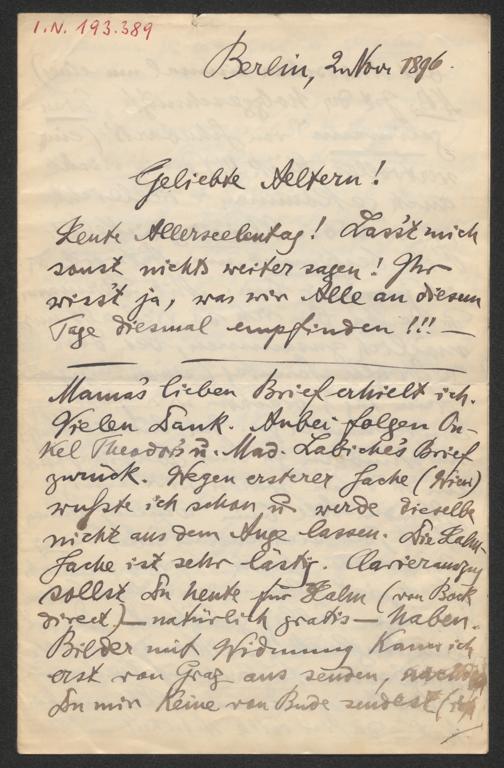 I.N. 193.389
Berlin, 2. Nov. 1896.
Geliebte Aeltern!
Heute Allerseelentag! Lasst mich
sonst nichts weiter sagen! Ihr
wisst ja, was wir Alle an diesem
Tage diesmal empfinden!!! —
Mama's lieben Brief erhielt ich.
Vielen Dank. Anbei folgen On-
kel Theodor's u. Mad. Labiche's Brief
zurück. Wegen ersterer Sache (Wien)
wußte ich schon u. werde dieselbe
nicht aus dem Auge lassen. Die Hahn-
Sache ist sehr lästig. Clavierauszug
sollst Du heute für Hahn (von Bock
direct) — natürlich gratis — haben.
Bilder mit Widmung kann ich
erst von Graz aus senden, nachdem
Du mir keine von Bude sendest (ich